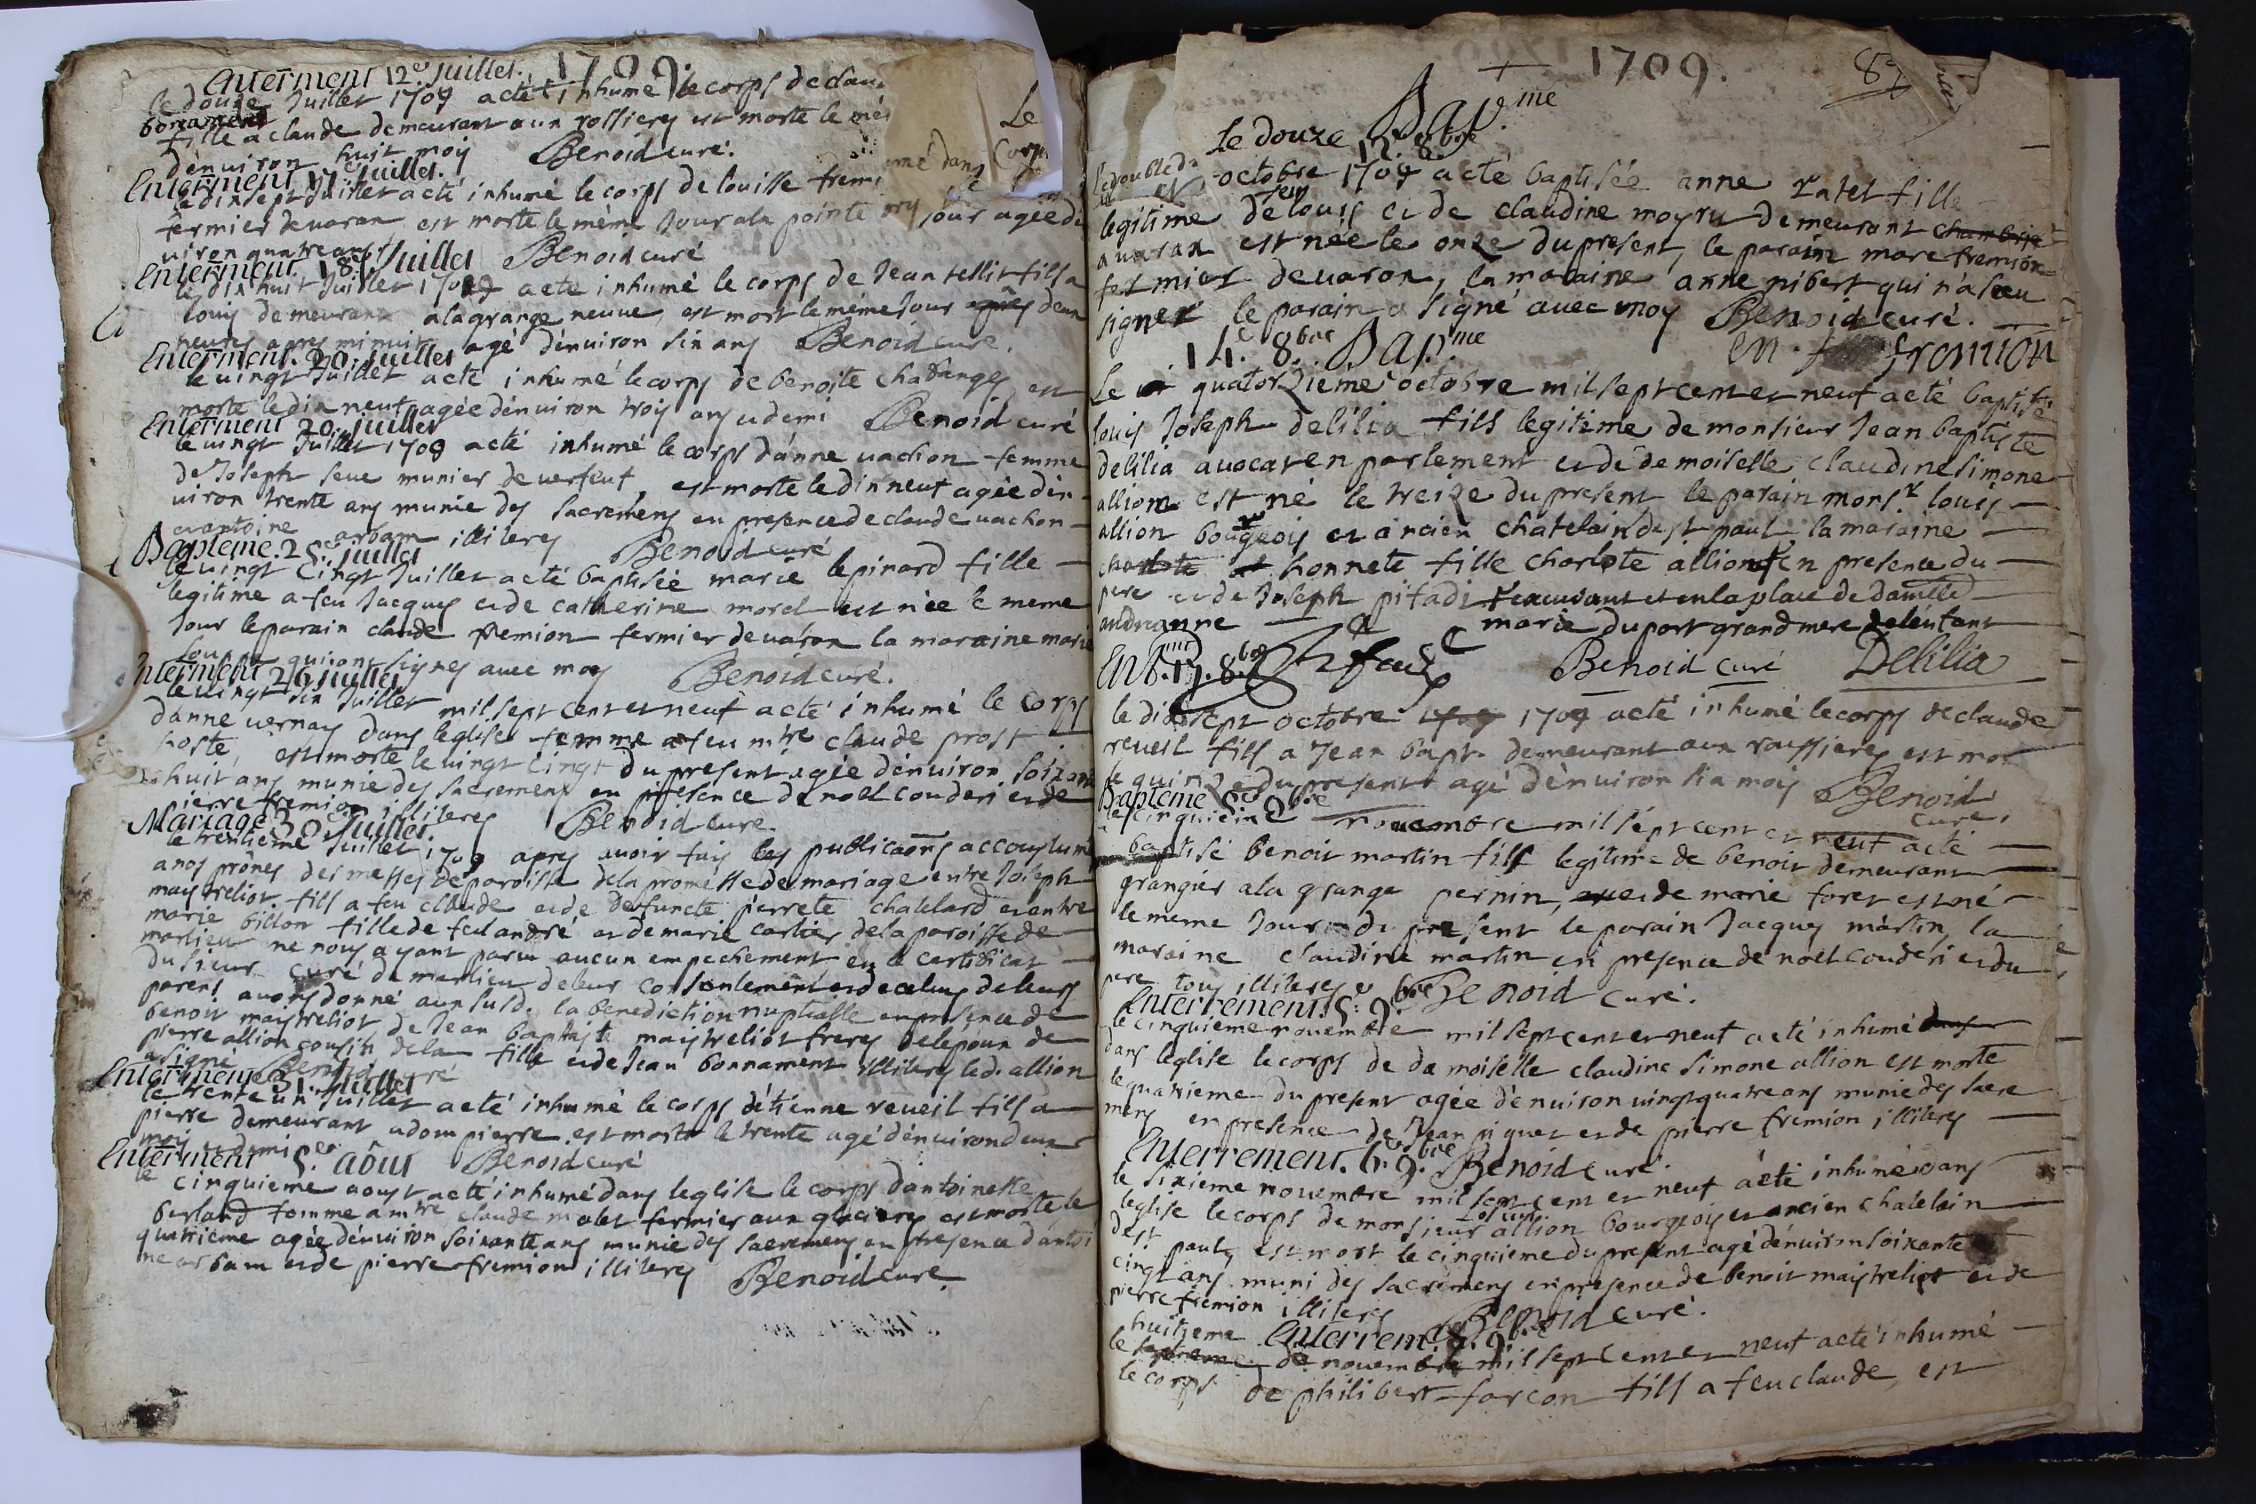 Enterment 12e Juillet. 1709.
le douze Juillet 1709 a eté inhumé le corps de clau
bonament
fille a claude demeurant aux rossieres est morte le mé
d'enuiron huit mois Benoid curé.
Enterment 17e Juillet.
le dixsept Juillet a eté inhumé le corps de louisse fremi
fermier de uaran est morte le même Jour a la pointe du Jour agée d'e
uiron quatre ans Benoid curé
Enterment. 18e Juillet
le dix huit Juillet 1709 a ete inhumé le corps de Jean tellis fils a
louis demeurant a la grange neuue, est mort le méme Jour apres deux
heures apres minuit agé d'enuiron six ans Benoid curé.
Enterment. 20. Juillet
le uingt Juillet a eté inhumé le corps de benoite chabanges est
morte le dix neuf agée d'enuiron trois ans et demi Benoid curé
Enterment 20 Juillet
le uingt Juillet 1709 a eté inhumé le corps d'anne uachon femme
de Joseph seue munier de uerseut est morte le dix neuf agée d'en-
uiron trente ans munie des sacremens en presence de claude uachon
et antoine arbam illiteres Benoid curé
Bapteme. 25e Juillet
le uingt Cinqt Juillet a eté baptisée marie lepinard fille
legitime a feu Jacques et de catherine morel est née le meme
Jour le parain claude fremion fermier de uaran la maraine marie
qui ont signes auec moy Benoid curé.
Enterment 26 Juillet
le uingt six Juillet mil sept cent et neuf a eté inhumé le corps
d'anne uernay dans l'eglise femme a feu mtre claude prost
hoste, est morte le uingt cinqt du present agée d'enuiron soixante
huit ans munie des sacremens en presence de noel couderi et de
pierre fremion illiteres Benoid cure.
Mariage 30 Juillet.
le trentieme Juillet 1709 apres auoir fais les publicaons accoustume
a nos prônes des messes de paroisse de la promesse de mariage entre Joseph
maistreliot fils a feu claude et de defuncte pierrete chatelard et entre
marie billon fille de feu andre et de marie cartier de la paroisse de
marlieu ne nous ayant paru aucun empechement eu le certificat
du sieur curé de marlieu de leur consentement et de celuy de leurs
parens auons donné aux susd. la benediction nuptialle en presence de
benoit maistreliot de Jean baptist maistreliot freres de l'epoux de
pierre allion cousin de la fille et de Jean bonnament illiteres led. allion
a signé Benoid curé
Enterment 31. Juillet
le trente un Juillet a eté inhumé le corps d'etienne reueil fils a
pierre demeurant a dom pierre est mort le trente agé d'enuiron deux
mois et demi Benoid curé
Enterment 5.e aôut
le cinquieme aoust a eté inhumé dans leglise le corps d'antoinette
berland femme a mtre claude malet fermier aux glacieres est morte le
quatrieme agée d'enuiron soixante ans munie des sacremens en presence d'antoi
ne arbam et de pierre fremion illiteres Benoid cure.
1709.
87
Bap.me
le douze 12. 8bre
octobre 1709 a eté baptisée anne ratel fille
legitime de feu louis et de claudine moyru demeurant
a uaran est née le onze du present, le parain marc fremion
fermier de uaron, la maraine anne nibert qui n'a sceu
signer le parain a signé auec moy Benoid curé.
14.e 8bre Bap.me fremion
Le quatorzieme octobre mil sept cent et neuf a eté baptisé
louis Joseph delilia fils legitime de monsieur Jean baptiste
delilia auocat en parlement et de demoiselle claudine simone
allion est né le treize du present le parain monsr louis
allion bourgeois et ancien chatelain de st paul la maraine
honnete fille charlote allion en presence du
pere et de Joseph pitadi et en la place de damlle
marie duport grand mere de l'enfant
Benoid curé Delilia
Entment. 17. 8bre
le dixsept octobre 1709 a eté inhumé le corps de claude
reueil fils a Jean bapt. demeurant aux roussieres est mort
le quinze du present agé d'enuiron six mois Benoid
curé.
Bapteme 5e 9bre
le cinquieme nouembre mil sept cent et neuf a eté
baptisé benoit martin fils legitime de benoit demeurant
grangier a la grange pernin, et de marie foret est né
le meme Jour du present le parain Jacques martin, la
maraine claudine martin en presence de noel couderi et du
pere tous illiteres Benoid curé.
Enterrement. 5. 9bre
le cinquieme nouembre mil sept cent et neuf a eté inhumé
dans leglise le corps de damoiselle claudine simone allion est morte
le quatrieme du present agée d'enuiron uingt quatre ans munie des sacre
mens en presence de Jean piquet et de pierre fremion illiteres
Enterrement. 6. 9bre Benoid curé.
le sixieme nouembre mil sept cent et neuf a eté inhumé dans
leglise le corps de monsieur allion bourgeois et ancien chatelain
de st paul, est mort le cinquieme du present agé d'enuiron soixante
cinqt ans muni des sacremens en presence de benoit maistreliot et de
pierre fremion illiteres Benoid curé.
Enterrem. 8. 9bre
le huitieme de nouembre mil sept cent et neuf a eté inhumé
le corps de philibert farcon fils a feu claude, est